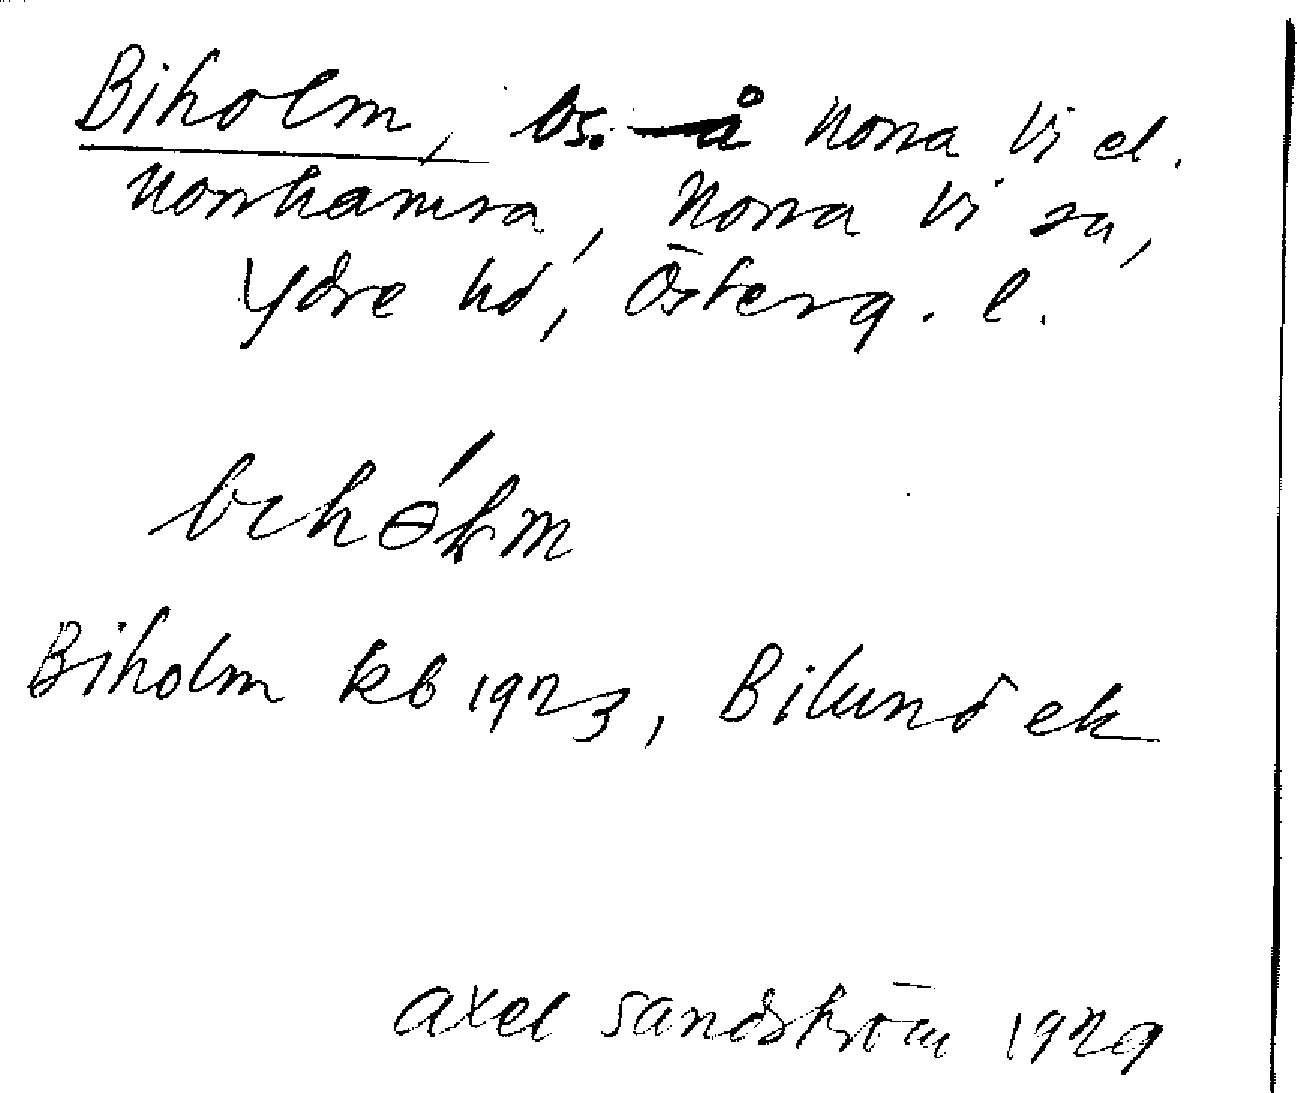 Biholm, bs. å Norra Vi el.
Norrhamra, Norra Vi sn,
Ydre hd, Österg. l.
Biholm kb 1923, Bilund ek
Axel Sandström 1929